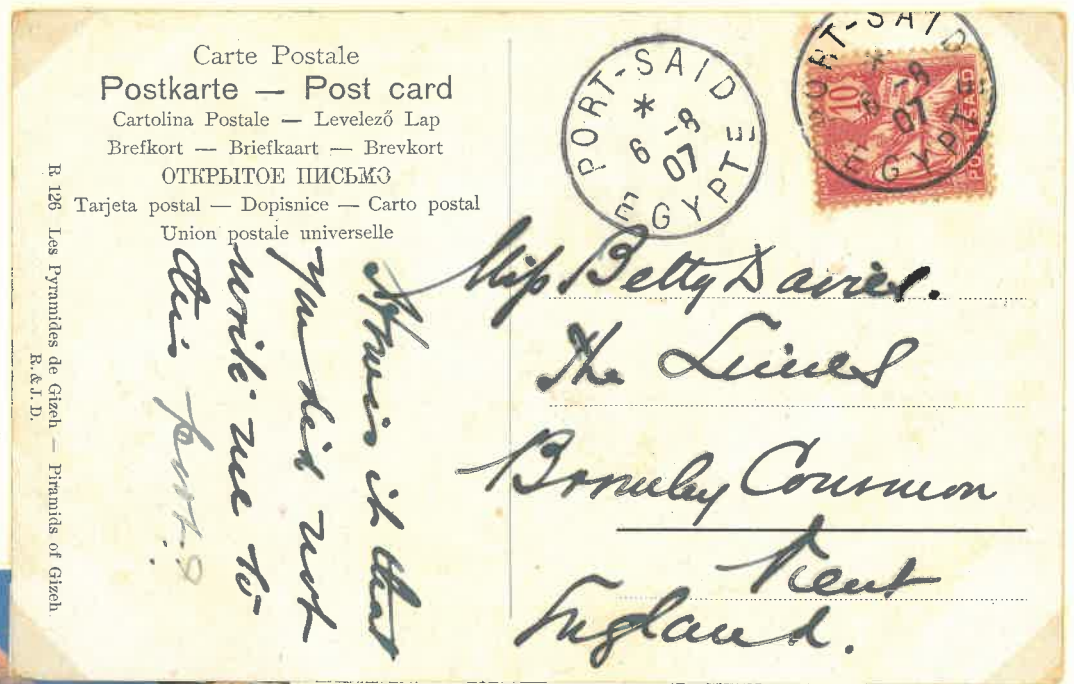 Carte Postale
Postkarte — Post card
Cartolina Postale — Levelező Lap
Brefkort — Briefkaart — Brevkort
ОТКРЫТОЕ ПИСЬМО
Tarjeta postal — Dopisnice — Carto postal
Union postale universelle
R 126 Les Pyramides de Gizeh — Piramids of Gizeh
R. & J. D.
PORT-SAID
* 6 -8
07
EGYPTE
PORT-SAID
* 6 -8
07
EGYPTE
10
PORT-SAID
is it that
you did not
write me to
this port?
Miss Betty Davies.
The Limes
Bromley Common
Kent
England.